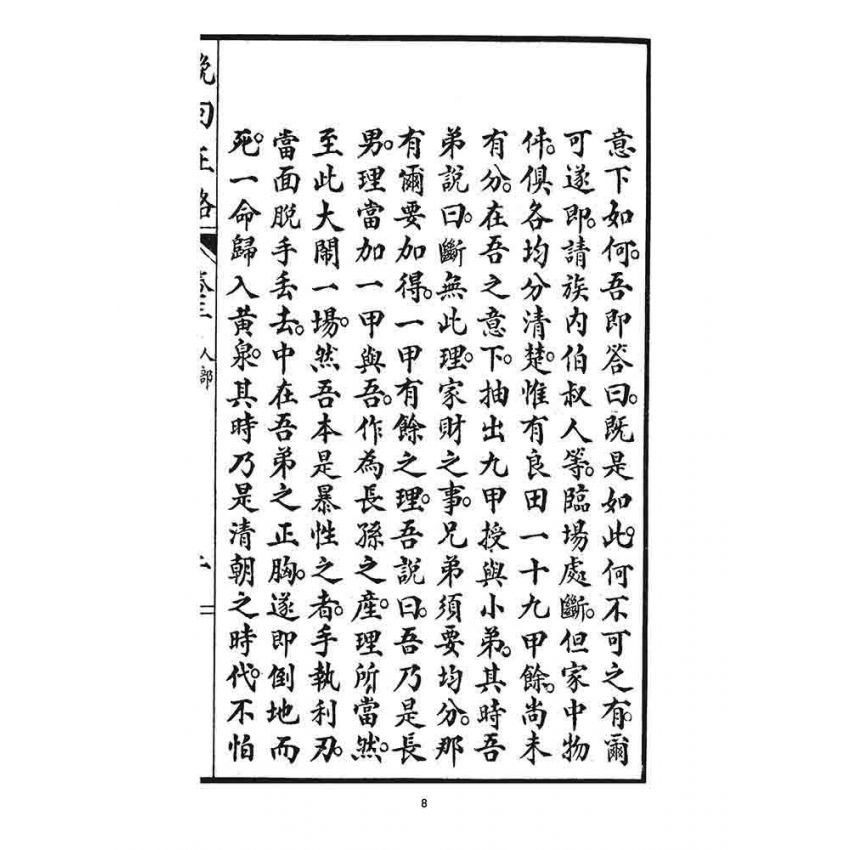 意下如何。吾即答曰。既是如此。何不可之有。爾
可遂即。請族内伯叔人等。臨場處斷。但家中物
件。俱各均分清楚。惟有良田一十九甲餘。尚未
有分。在吾之意下。抽出九甲授與小弟。其時吾
弟說曰。斷無此理。家財之事。兄弟須要均分。那
有爾要加得。一甲有餘之理。吾說曰。吾乃是長
男。理當加一甲與吾。作為長孫之產。理所當然。
至此大鬧一場。然吾本是暴性之者。手執利刃。
當面脫手丟去。中在吾弟之正胸。遂即倒地而
死。一命歸入黃泉。其時乃是清朝之時代。不怕
挽回正路 卷三 人部
8